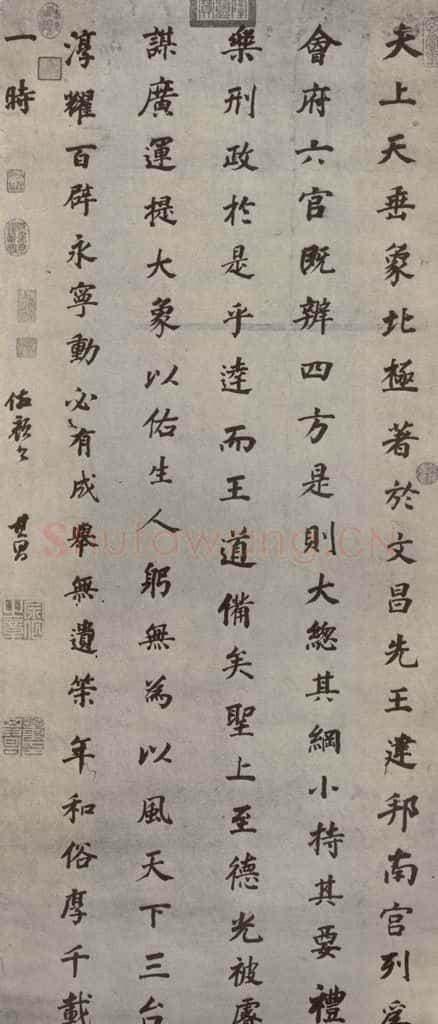 夫上天垂象北極著於文昌先王建邦南宮列爲
會府六官既辨四方是則大緫其綱小持其要禮
樂刑政於是乎達而王道備矣聖上至德光被睿
謀廣運提大象以佑生人躬無為以風天下三台
淳耀百辟永寧動必有成舉無遺策年和俗厚千載
一時
其昌
Shufawang.CN